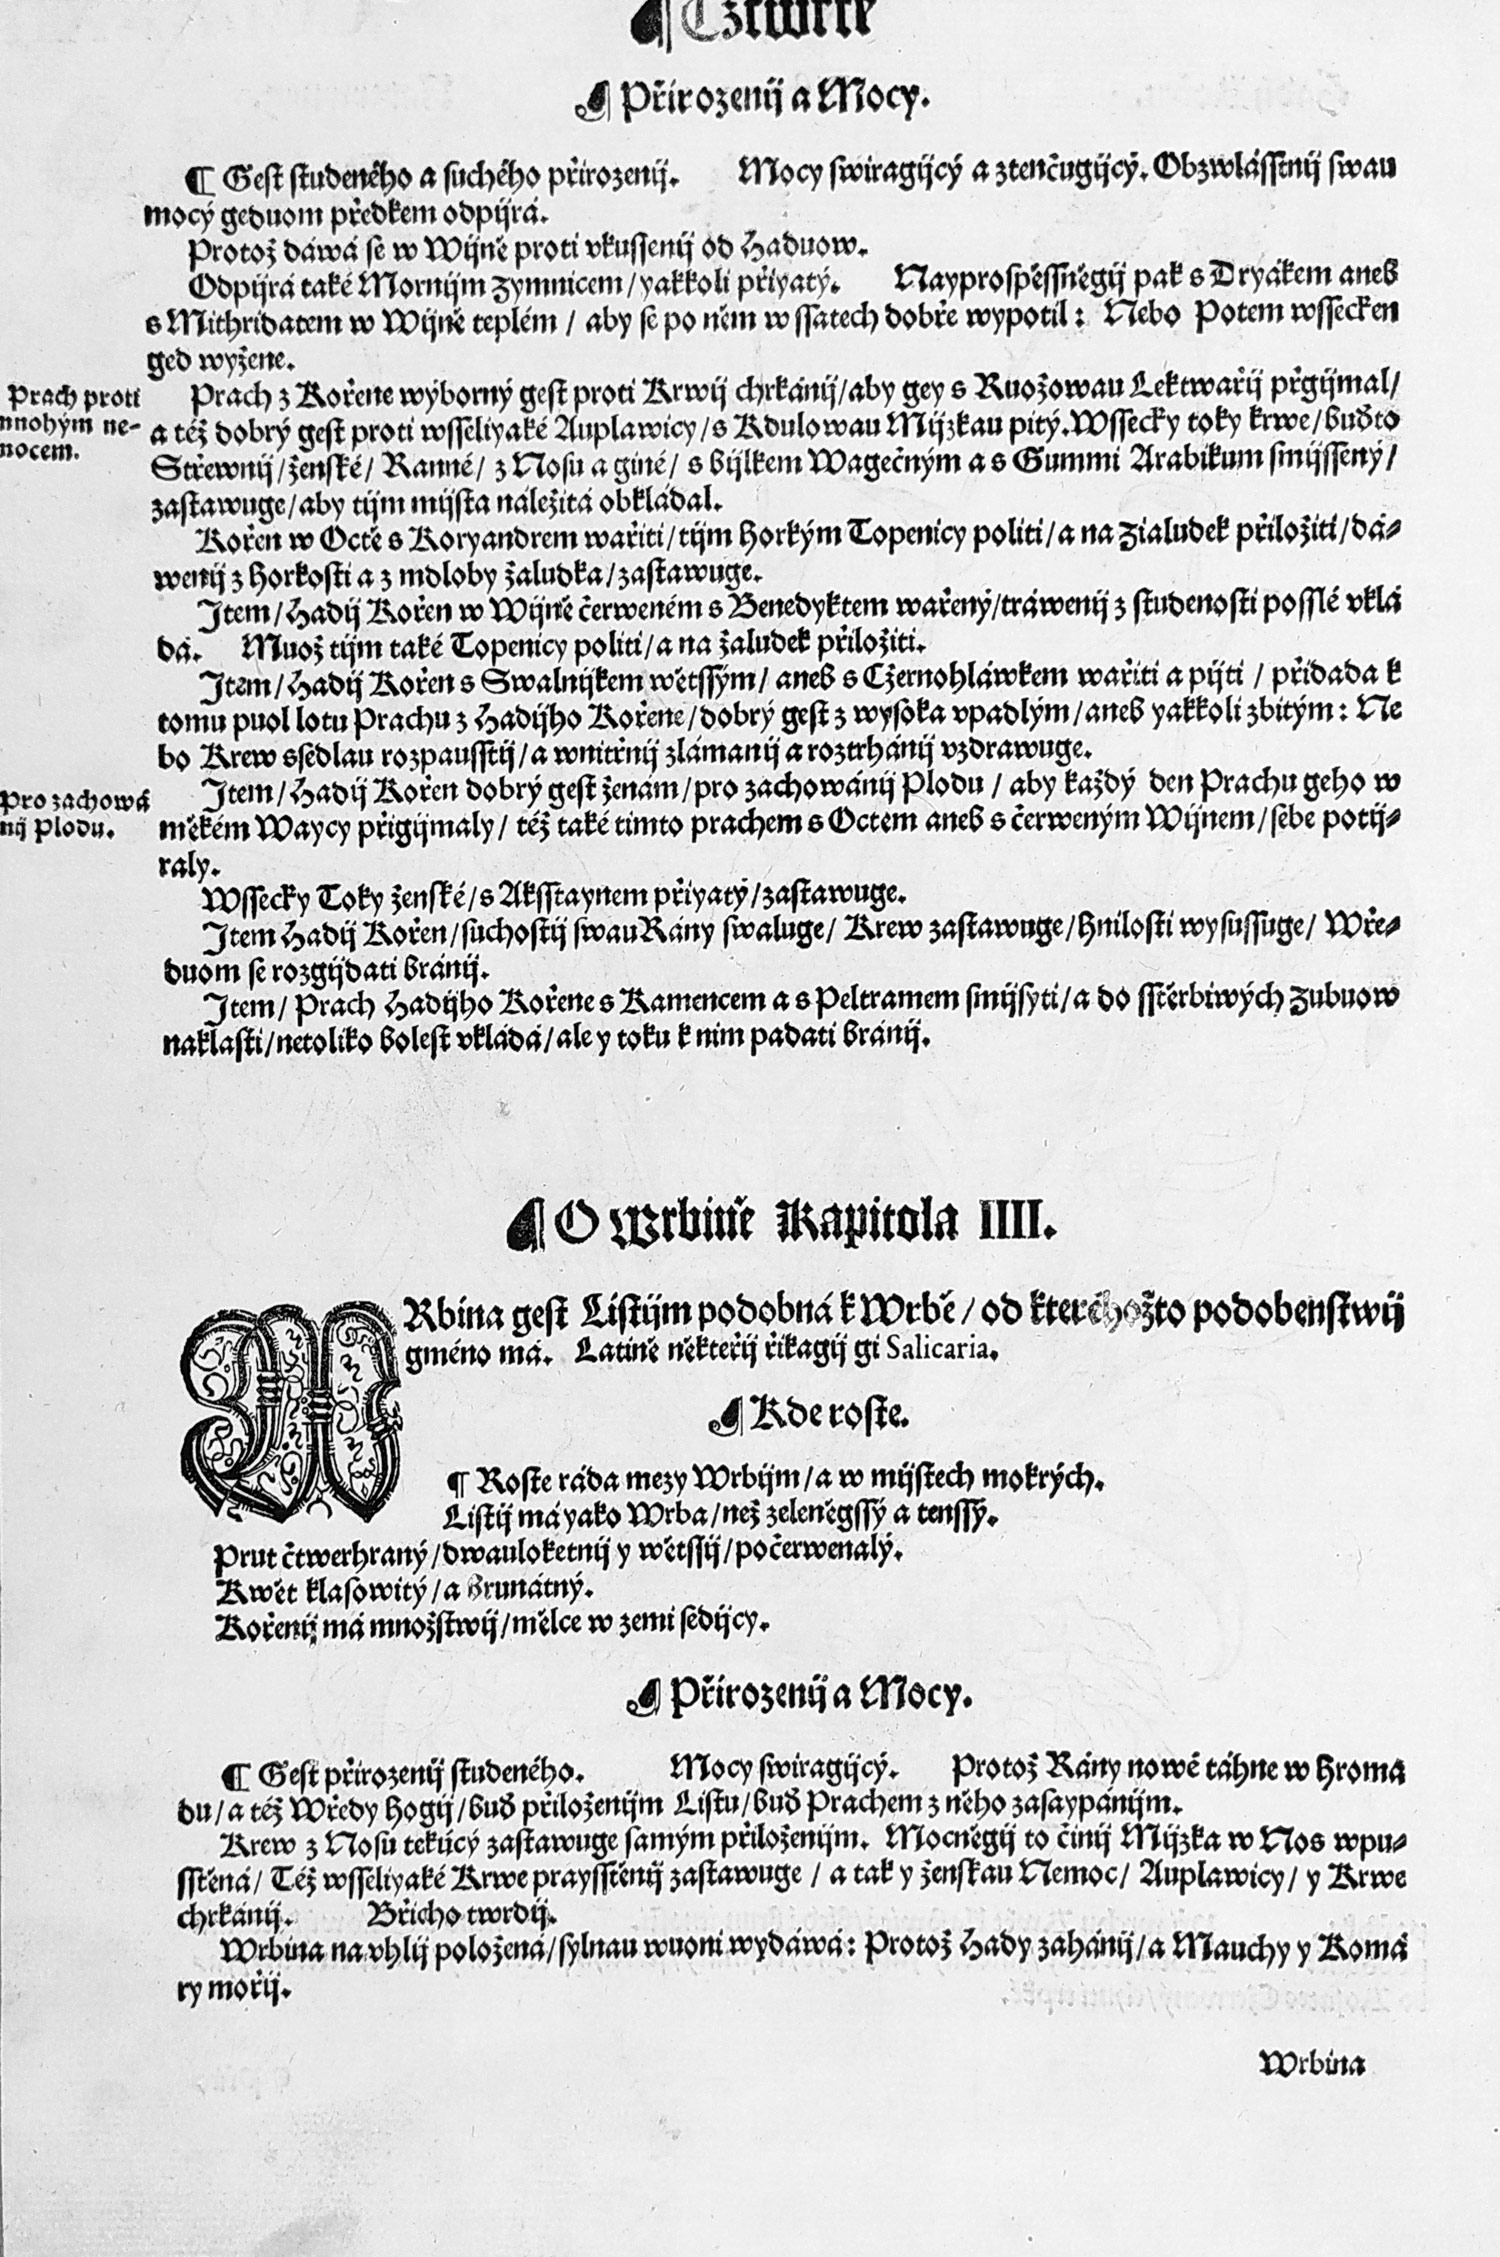 ¶ Cztwrte
¶ Přirozenij a Mocy.
¶ Gest studeného a suchého přirozenij. Mocy swiragijcý a ztenčugijcý. Obzwlásstnij swau
mocý geduom předkem odpijrá.
Protož dáwá se w Wijně proti vkussenij od Haduow.
Odpijrá také Mornijm Zymnicem / yakkoli přiyatý. Nayprospěssněgij pak s Dryákem aneb
s Mithridatem w Wijně teplém / aby se po něm w ssatech dobře wypotil: Nebo Potem wsseckeň
ged wyžene.
Prach proti
mnohým ne-
mocem.
Prach z Kořene wýborný gest proti Krwij chrkánij / aby gey s Ruožowau Lektwařij přgijmal /
a též dobrý gest proti wsseliyaké Auplawicy / s Kdulowau Mijzkau pitý. Wssecky toky krwe / buďto
Střewnij / ženské / Ranné / z Nosu a giné / s bijlkem Wagečným a s Gummi Arabikum smijssený /
zastawuge / aby tijm mijsta náležitá obkládal.
Kořen w Octě s Koryandrem wařiti / tijm horkým Topenicy politi / a na Zialudek přiložiti / dá-
wenij z horkosti a z mdloby žaludka / zastawuge.
Item / Hadij Kořen w Wijně čerweném s Benedyktem wařený / tráwenij z studenosti posslé vklá
dá. Muož tijm také Topenicy politi / a na žaludek přiložiti.
Item / Hadij Kořen s Swalnijkem wětssým / aneb s Czernohláwkem wařiti a pijti / přidada k
tomu puol lotu Prachu z Hadijho Kořene / dobrý gest z wysoka vpadlým / aneb yakkoli zbitým: Ne
bo Krew ssedlau rozpausstij / a wnitřnij zlámanij a roztrhánij vzdrawuge.
Pro zachowá
nij Plodu.
Item / Hadij Kořen dobrý gest ženám / pro zachowánij Plodu / aby každý den Prachu geho w
měkém Waycy přigijmaly / též také tijmto prachem s Octem aneb s čerweným Wijnem / sebe potij-
raly.
Wssecky Toky ženské / s Aksstaynem přiyatý / zastawuge.
Item Hadij Kořen / suchostij swau Rány swaluge / Krew zastawuge / hnilosti wysussuge / Wře-
duom se rozgijdati bránij.
Item / Prach Hadijho Kořene s Kamencem a s Peltramem smijsyti / a do sstěrbiwých Zubuow
naklasti / netoliko bolest vkládá / ale y toku k nim padati bránij.
¶ O Wrbině Kapitola IIII.
WRbina gest Listijm podobná k Wrbě / od kteréhožto podobenstwij
gméno má. Latině někteřij řikagij gi Salicaria.
¶ Kde roste.
¶ Roste ráda mezy Wrbijm / a w mijstech mokrých.
Listij má yako Wrba / než zeleněgssý a tenssý.
Prut čtwerhraný / dwauloketnij y wětssij / počerwenalý.
Kwět klasowitý / a brunátný.
Kořenij má množstwij / mělce w zemi sedijcy.
¶ Přirozenij a Mocy.
¶ Gest přirozenij studeného. Mocy swiragijcý. Protož Rány nowé táhne w hroma
du / a též Wředy hogij / buď přiloženijm Listu / buď Prachem z něho zasaypánijm.
Krew z Nosu tekijcý zastawuge samým přiloženijm. Mocněgij to činij Mijzka w Nos wpu-
sstěná / Též wsseliyaké Krwe praysstěnij zastawuge / a tak y ženskau Nemoc / Auplawicy / y Krwe
chrkánij. Břicho twrdij.
Wrbina na vhlij položená / sylnau wuoni wydáwá: Protož Hady zahánij / a Mauchy y Komá
ry mořij.
Wrbina